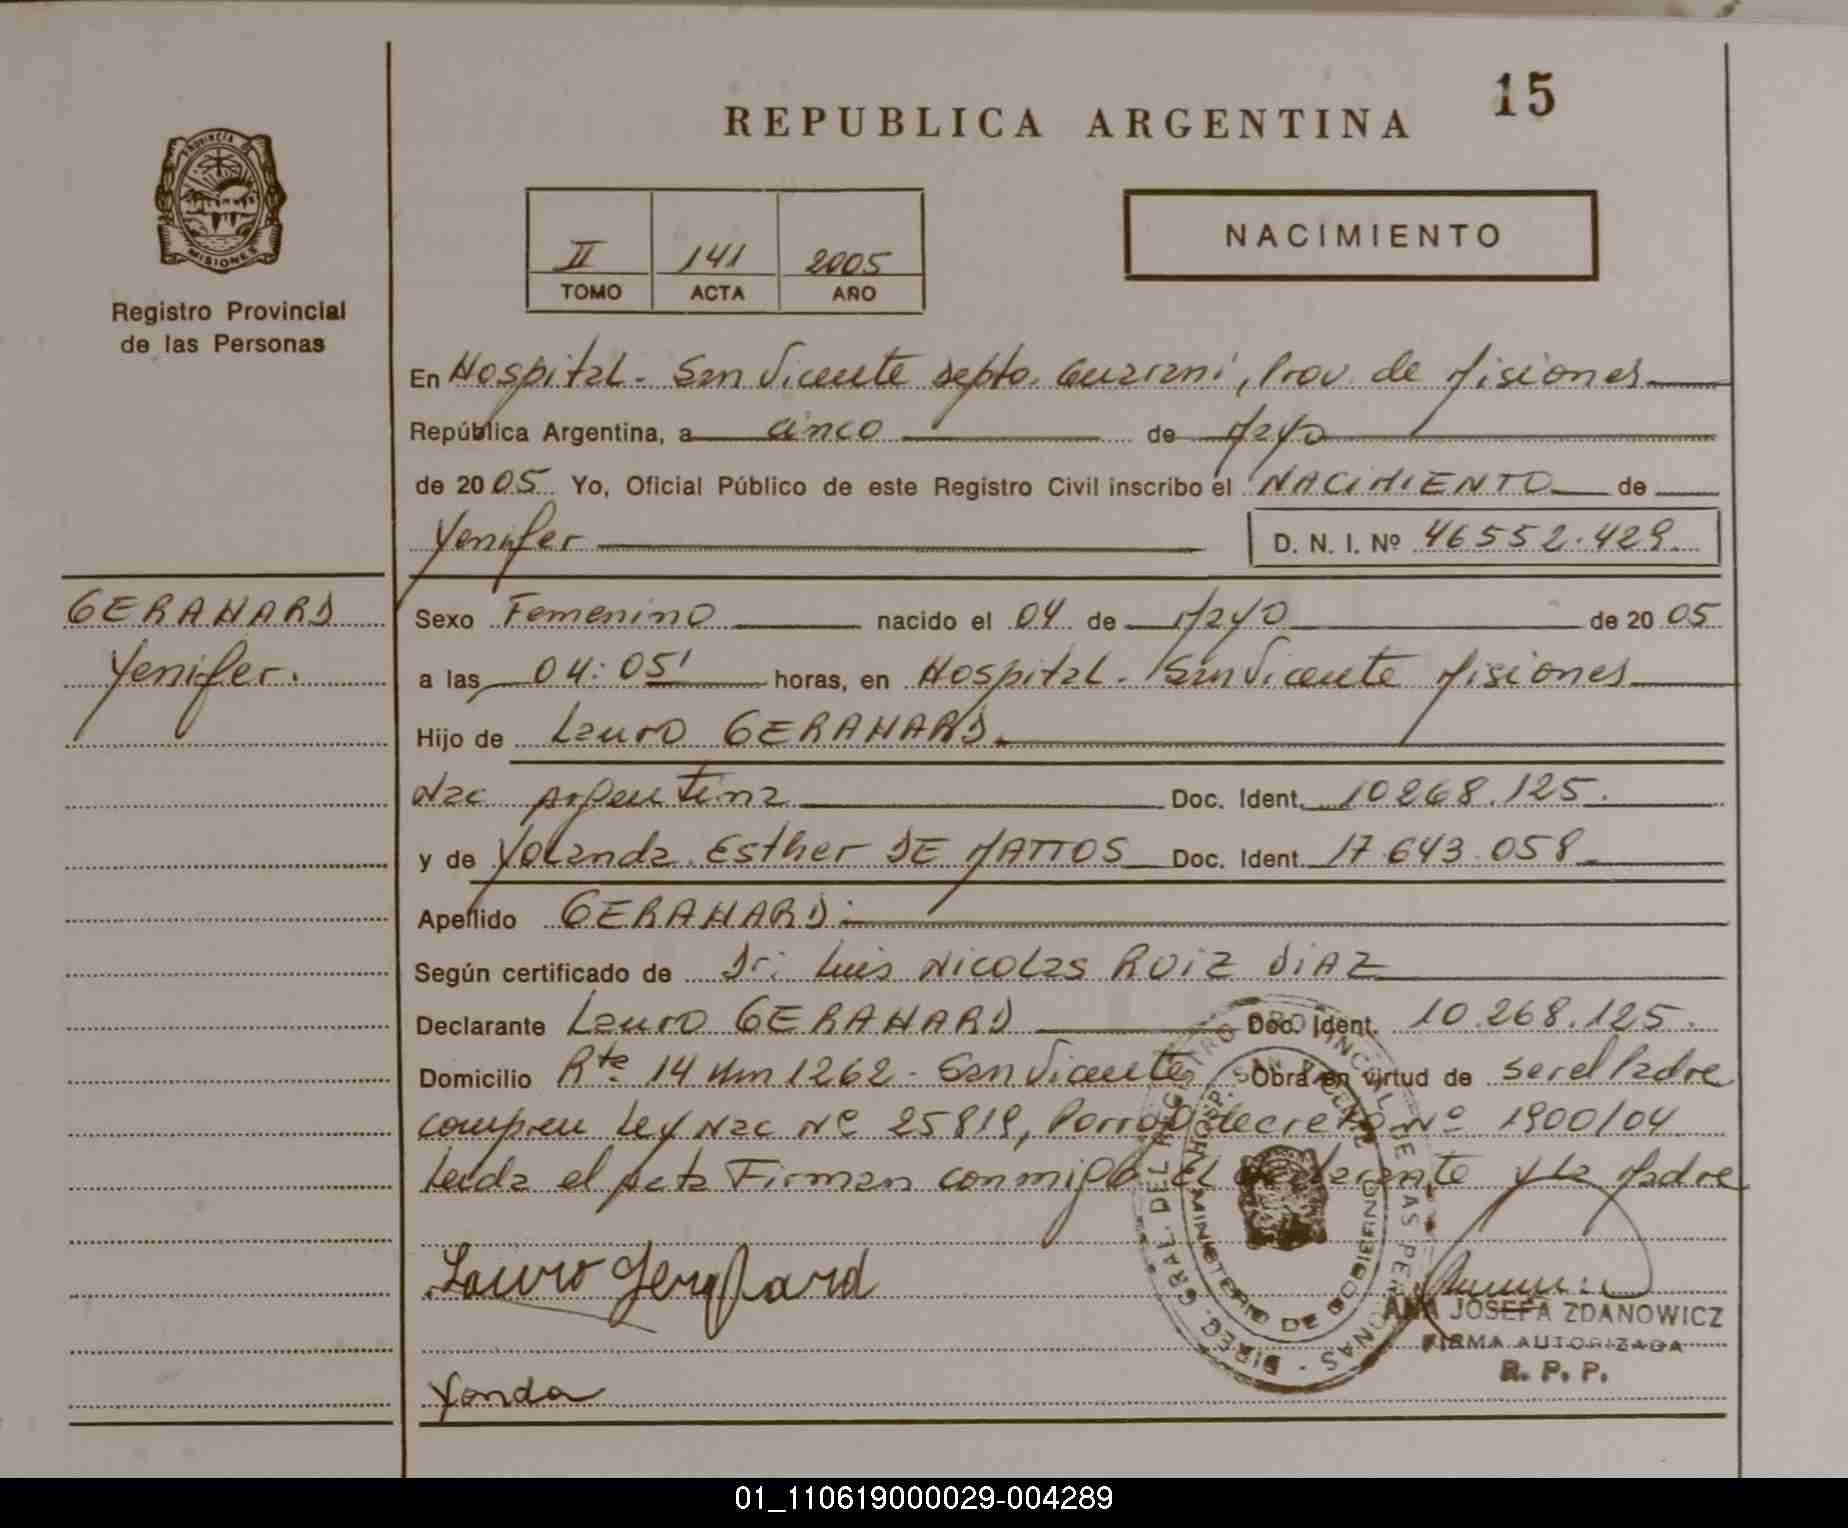 15
REPUBLICA ARGENTINA
PROVINCIA DE
MISIONES
Registro Provincial
de las Personas
II 141 2005
TOMO ACTA AÑO
NACIMIENTO
En Hospital - San Vicente depto. Guarani, Prov. de Misiones
República Argentina, a cinco de Mayo
de 2005 Yo, Oficial Público de este Registro Civil inscribo el NACIMIENTO de
Yenifer D. N. I. Nº 46552.429
GERAHARD
Yenifer.
Sexo Femenino nacido el 04 de Mayo de 2005
a las 04:05' horas, en Hospital - San Vicente Misiones
Hijo de Lauro GERAHARD.
Nac Argentina Doc. Ident. 10268.125.
y de Yolanda Esther DE MATTOS Doc. Ident. 17.643.058
Apellido GERAHARD
Según certificado de Dr: Luis Nicolas RUIZ DIAZ
Declarante Lauro GERAHARD Doc. Ident. 10.268.125.
Domicilio Rta 14 Km 1262 - San Vicente Obra en virtud de ser el Padre
Ley Nac Nº 25819, decreto Nº 1900/04
Leida el acta Firman conmigo el declarante y la Madre
Lauro Gerahard
DIREC. GRAL. DEL REGISTRO PROVINCIAL DE LAS PERSONAS
HOSP. SAN VICENTE
MINISTERIO DE GOBIERNO
ANA JOSEFA ZDANOWICZ
FIRMA AUTORIZADA
R. P. P.
Yonda
01_110619000029-004289